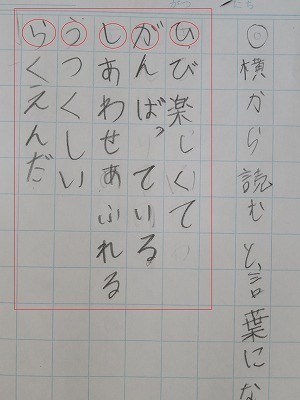 がつ にち
◎横から読むと、言葉にな
ひび楽しくて
がんばっている
しあわせあふれる
うつくしい
らくえんだ